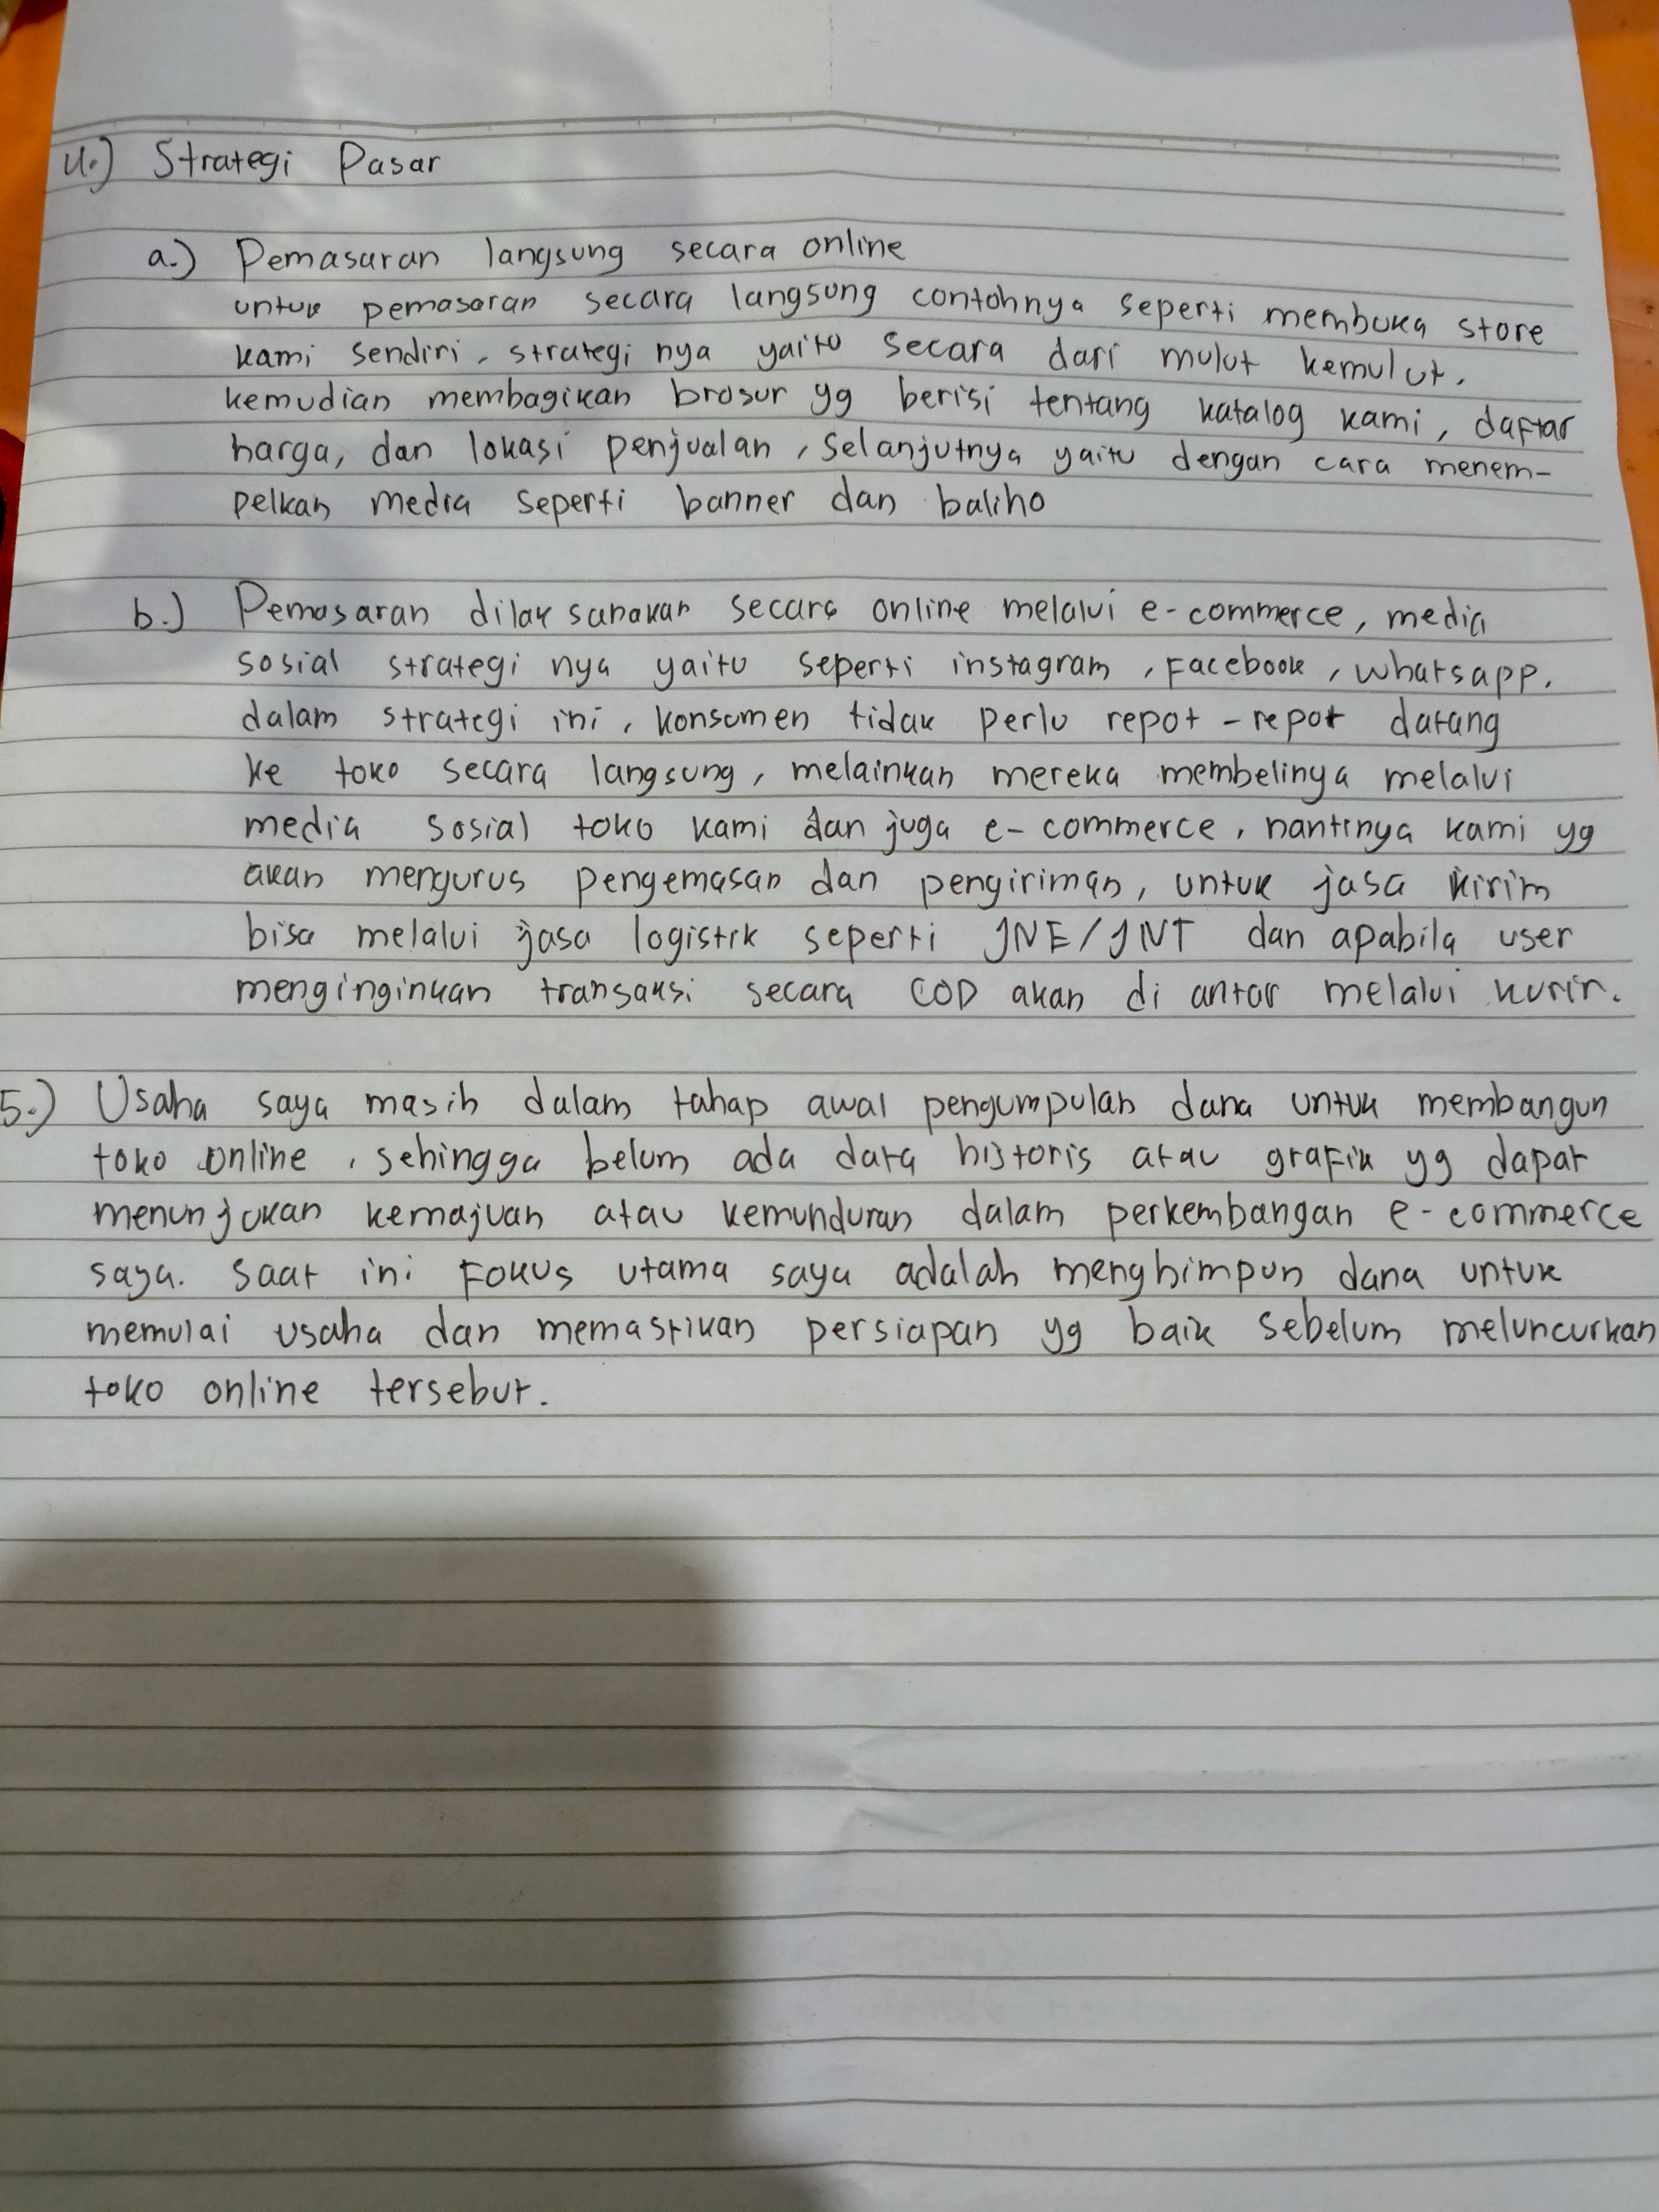 4.) Strategi Pasar
a.) Pemasaran langsung secara online
untuk pemasaran secara langsung contohnya seperti membuka store
kami sendiri, strategi nya yaitu secara dari mulut kemulut.
kemudian membagikan brosur yg berisi tentang katalog kami, daftar
harga, dan lokasi penjualan, selanjutnya yaitu dengan cara menem-
pelkan media seperti banner dan baliho
b.) Pemasaran dilaksanakan secara online melalui e-commerce, media
sosial strategi nya yaitu seperti instagram, Facebook, whatsapp.
dalam strategi ini, konsumen tidak perlu repot-repot datang
ke toko secara langsung, melainkan mereka membelinya melalui
media sosial toko kami dan juga e-commerce, nantinya kami yg
akan mengurus pengemasan dan pengiriman, untuk jasa kirim
bisa melalui jasa logistik seperti JNE/JNT dan apabila user
menginginkan transaksi secara COD akan di antar melalui kurir.
5.) Usaha saya masih dalam tahap awal pengumpulan dana untuk membangun
toko online, sehingga belum ada data historis atau grafik yg dapat
menunjukan kemajuan atau kemunduran dalam perkembangan e-commerce
saya. saat ini Fokus utama saya adalah menghimpun dana untuk
memulai usaha dan memastikan persiapan yg baik sebelum meluncurkan
toko online tersebut.